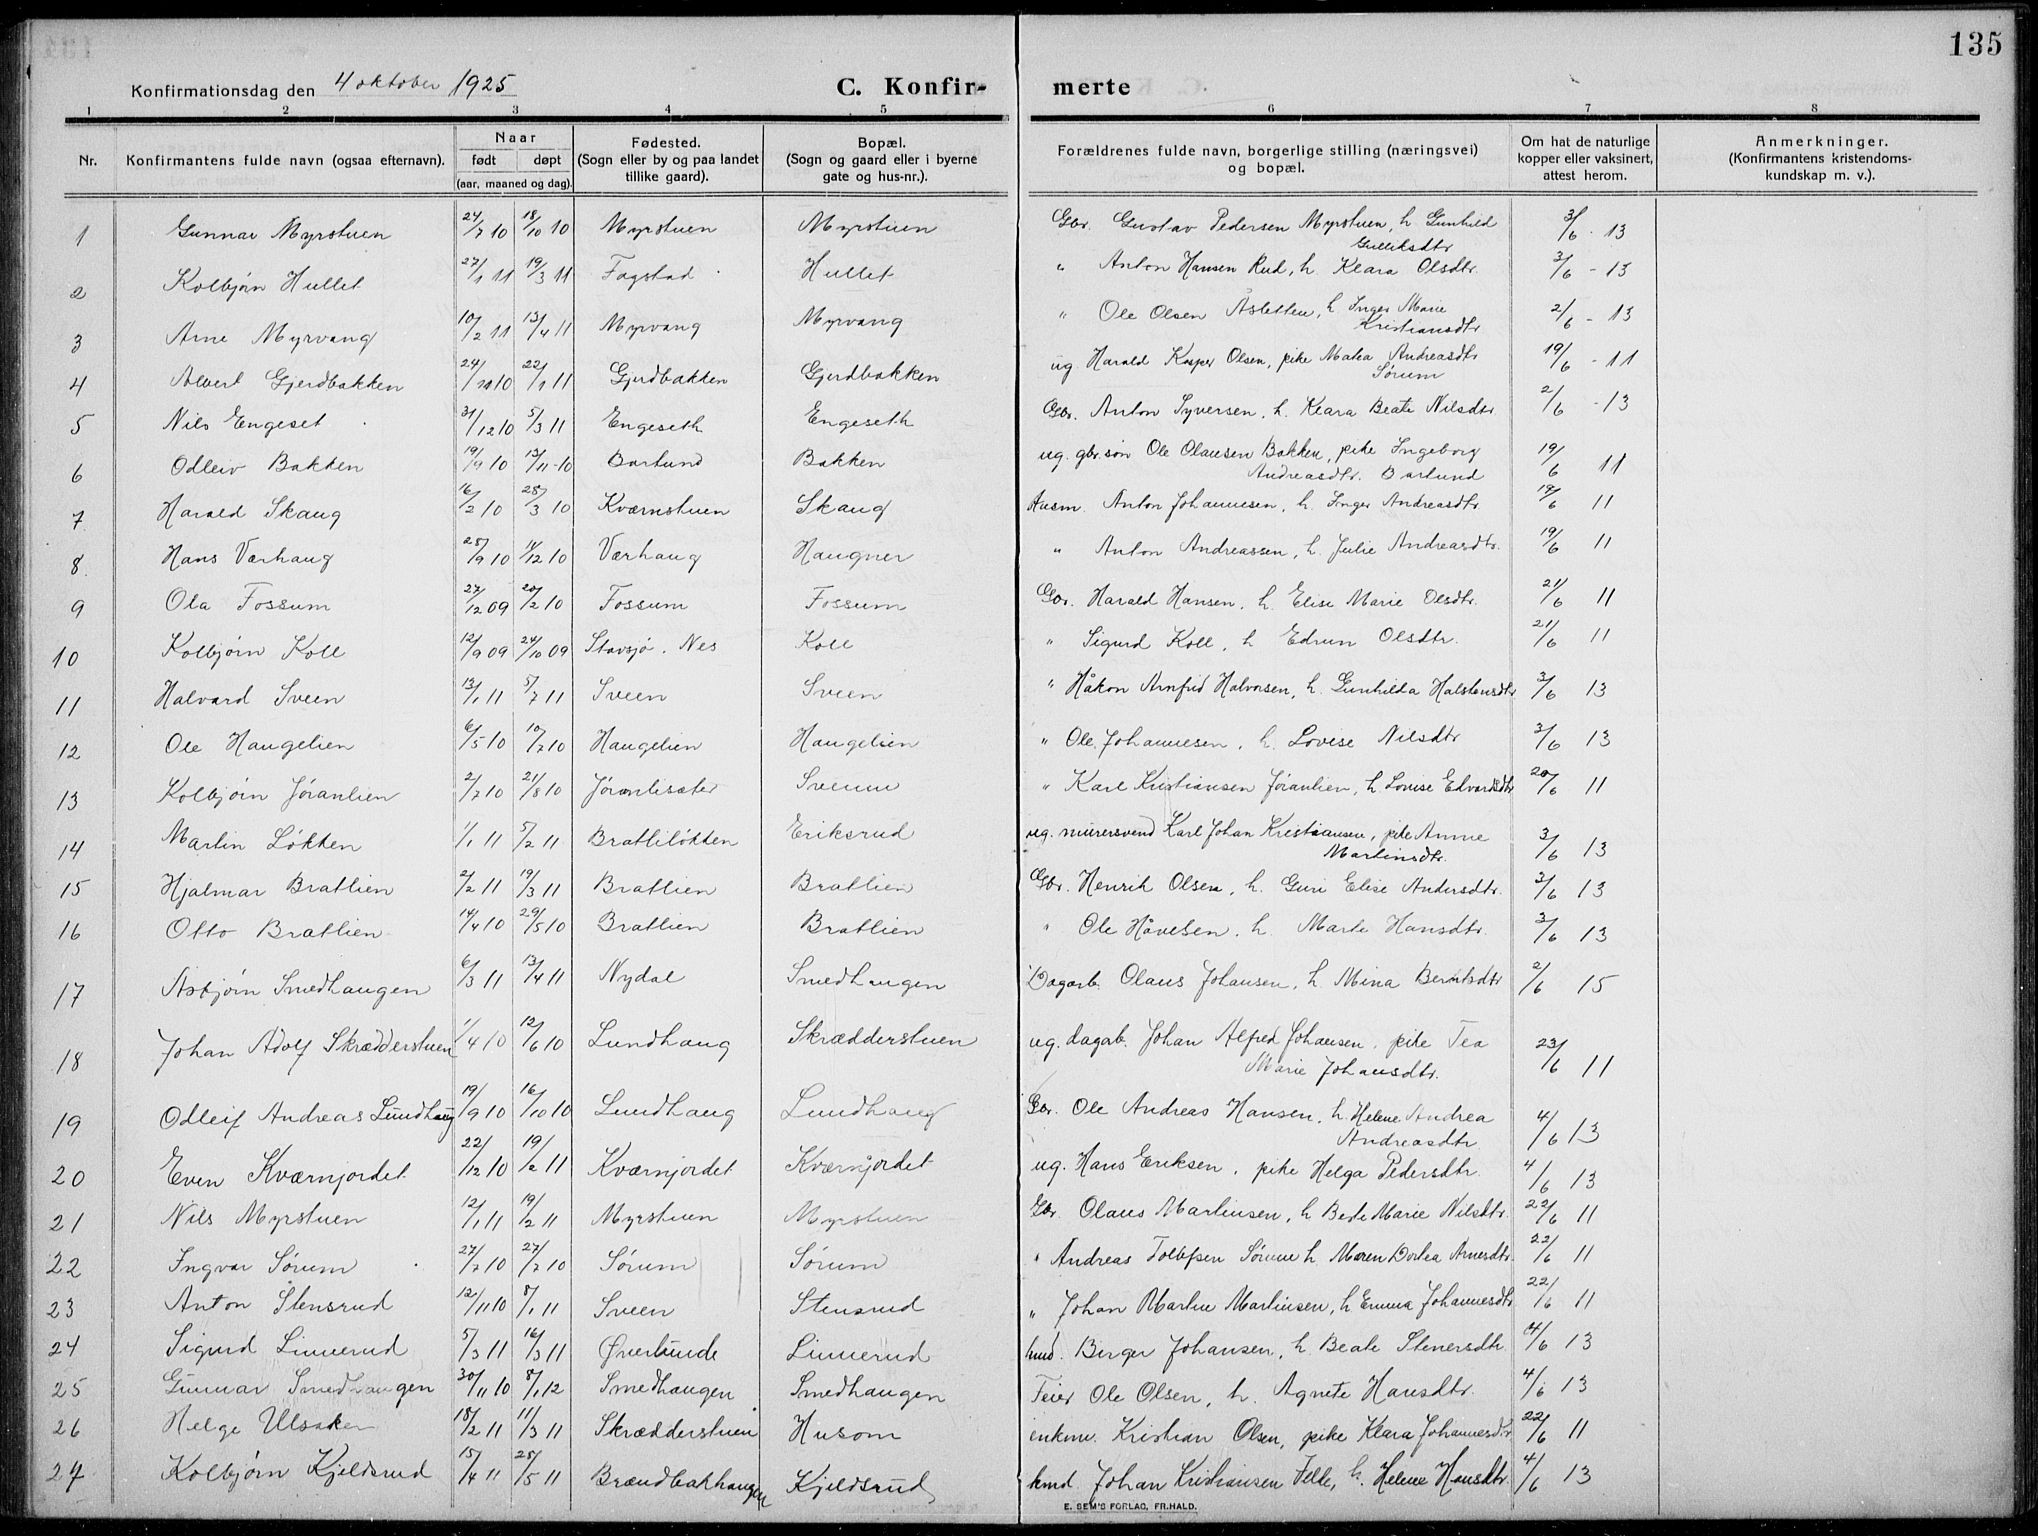 135
Konfirmationsdag den 4 oktober 1925 C. Konfir- merte
1 2 3 4 5 6 7 8
Nr. Konfirmantens fulde navn (ogsaa efternavn). Naar født døpt (aar, maaned og dag). Fødested. (Sogn eller by og paa landet tillike gaard). Bopæl. (Sogn og gaard eller i byerne gate og hus-nr.). Forældrenes fulde navn, borgerlige stilling (næringsvei) og bopæl. Om hat de naturlige kopper eller vaksinert, attest herom. Anmerkninger. (Konfirmantens kristendoms- kundskap m. v.).
1 Gunnar Myrstuen 24/7 10 18/10 10 Myrstuen Myrstuen Gbr. Gustav Pedersen Myrstuen, h. Gunhild 3/6 - 13
Gulliksdtr
2 Kolbjørn Hullet 27/1 11 19/3 11 Fagstad Hullet " Anton Hansen Rud, h. Klara Olsdtr. 3/6 - 13
3 Arne Myrvang 10/2 11 13/4 11 Myrvang Myrvang " Ole Olsen Åsletten, h. Inger Marie 2/6 - 13
Kristiansdtr
4 Alvert Gjerdbakken 24/11 10 22/1 11 Gjerdbakken Gjerdbakken ug Harald Kasper Olsen, pike Matea Andreasdtr 19/6 - 11
Sørum
5 Nils Engeset 31/12 10 5/3 11 Engeseth Engeseth Gbr. Anton Syversen, h. Klara Beate Nilsdtr 2/6 - 13
6 Odleiv Bakken 19/9 10 13/11 - 10 Barlund Bakken ug. gbr.søn Ole Olausen Bakken, pike Ingeborg 19/6 11
Andreasdtr. Barlund
7 Harald Skaug 16/2 10 28/3 10 Kværnstuen Skaug Husm. Anton Johannesen, h. Inger Andreasdtr 19/6 11
8 Hans Værhaug 28/9 10 11/12 10 Værhaug Haugner " Anton Andreassen, h. Julie Andreasdtr. 19/6 11
9 Ola Fossum 27/12 09 20/2 10 Fossum Fossum Gbr. Harald Hansen, h. Elise Marie Olsdtr. 21/6 11
10 Kolbjørn Koll 12/9 09 24/10 09 Stavsjø. Nes Koll " Sigurd Koll, h Edrun Olsdtr. 21/6 11
11 Halvard Sveen 13/1 11 5/7 11 Sveen Sveen " Håkon Arnfred Halvorsen, h. Gunhilda Halstensdtr 3/6 13
12 Ole Haugelien 6/5 10 10/7 10 Haugelien Haugelien " Ole Johannesen, h. Lovise Nilsdtr 3/6 13
13 Kolbjørn Jøranlien 2/7 10 21/8 10 Jøranlisæter Sveum " Karl Kristiansen Jøranlien, h Lovise Edvardsdtr 20/6 11
14 Martin Løkken 1/1 11 5/2 11 Brattiløkken Eriksrud ug. murersvend Karl Johan Kristiansen, pike Anne 3/6 13
Martinsdtr.
15 Hjalmar Bratlien 2/2 11 19/3 11 Bratlien Bratlien Gbr. Henrik Olsen, h. Guri Elise Andersdtr. 3/6 13
16 Otto Bratlien 14/4 10 29/5 10 Bratlien Bratlien " Ole Håvelsen, h. Marte Hansdtr. 3/6 13
17 Asbjørn Smedhaugen 6/3 11 13/4 11 Nydal Smedhaugen Dagarb. Olaus Johansen, h Mina Berntsdtr 2/6 15
18 Johan Adolf Skrædderstuen 1/4 10 12/6 10 Lundhaug Skrædderstuen ug. dagarb. Johan Alfred Johansen, pike Tea 23/6 11
Marie Johansdtr.
19 Odleif Andreas Lundhaug 19/9 10 16/10 10 Lundhaug Lundhaug Gbr. Ole Andreas Hansen, h. Helene Andrea 4/6 13
Andreasdtr
20 Even Kværnjordet 22/12 10 19/2 11 Kværnjordet Kværnjordet ug. Hans Eriksen, pike Helga Pedersdtr. 4/6 13
21 Nils Myrstuen 12/1 11 19/2 11 Myrstuen Myrstuen Gbr. Olaus Martinsen, h Berte Marie Nilsdtr. 22/6 11
22 Ingvar Sørum 27/7 10 27/7 10 Sørum Sørum " Andreas Tollefsen Sørum h. Maren Dortea Arnesdtr. 22/6 11
23 Anton Stensrud 12/11 10 8/1 11 Sveen Stensrud " Johan Martin Martinsen, h Emma Johannesdtr 22/6 11
24 Sigurd Linnerud 5/3 11 16/3 11 Øverlunde Linnerud hmd. Birger Johansen, h. Beate Stenersdtr. 4/6 13
25 Gunnar Smedhaugen 30/11 10 8/1 12 Smedhaugen Smedhaugen Feier Ole Olsen, h. Agnete Hansdtr. 4/6 13
26 Helge Ulsaker 18/2 11 11/3 11 Skrædderstuen Husom enkem. Kristian Olsen, pike Klara Johannesdtr 22/6 11
27 Kolbjørn Kjeldsrud 15/4 11 28/5 11 Brændbakhaugen Kjeldsrud hmd. Johan Kristiansen Felle, h. Helene Hansdtr. 4/6 13
E. SEM'S FORLAG, FR.HALD.